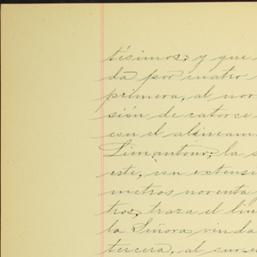 tésimos; y que
da por cuatro
primera, al nor
sión de catorce
con el alineam
Limantour; la s
este, con extensi
metros noventa
tros, traza el lin
la Señora viuda
tercera, al sur